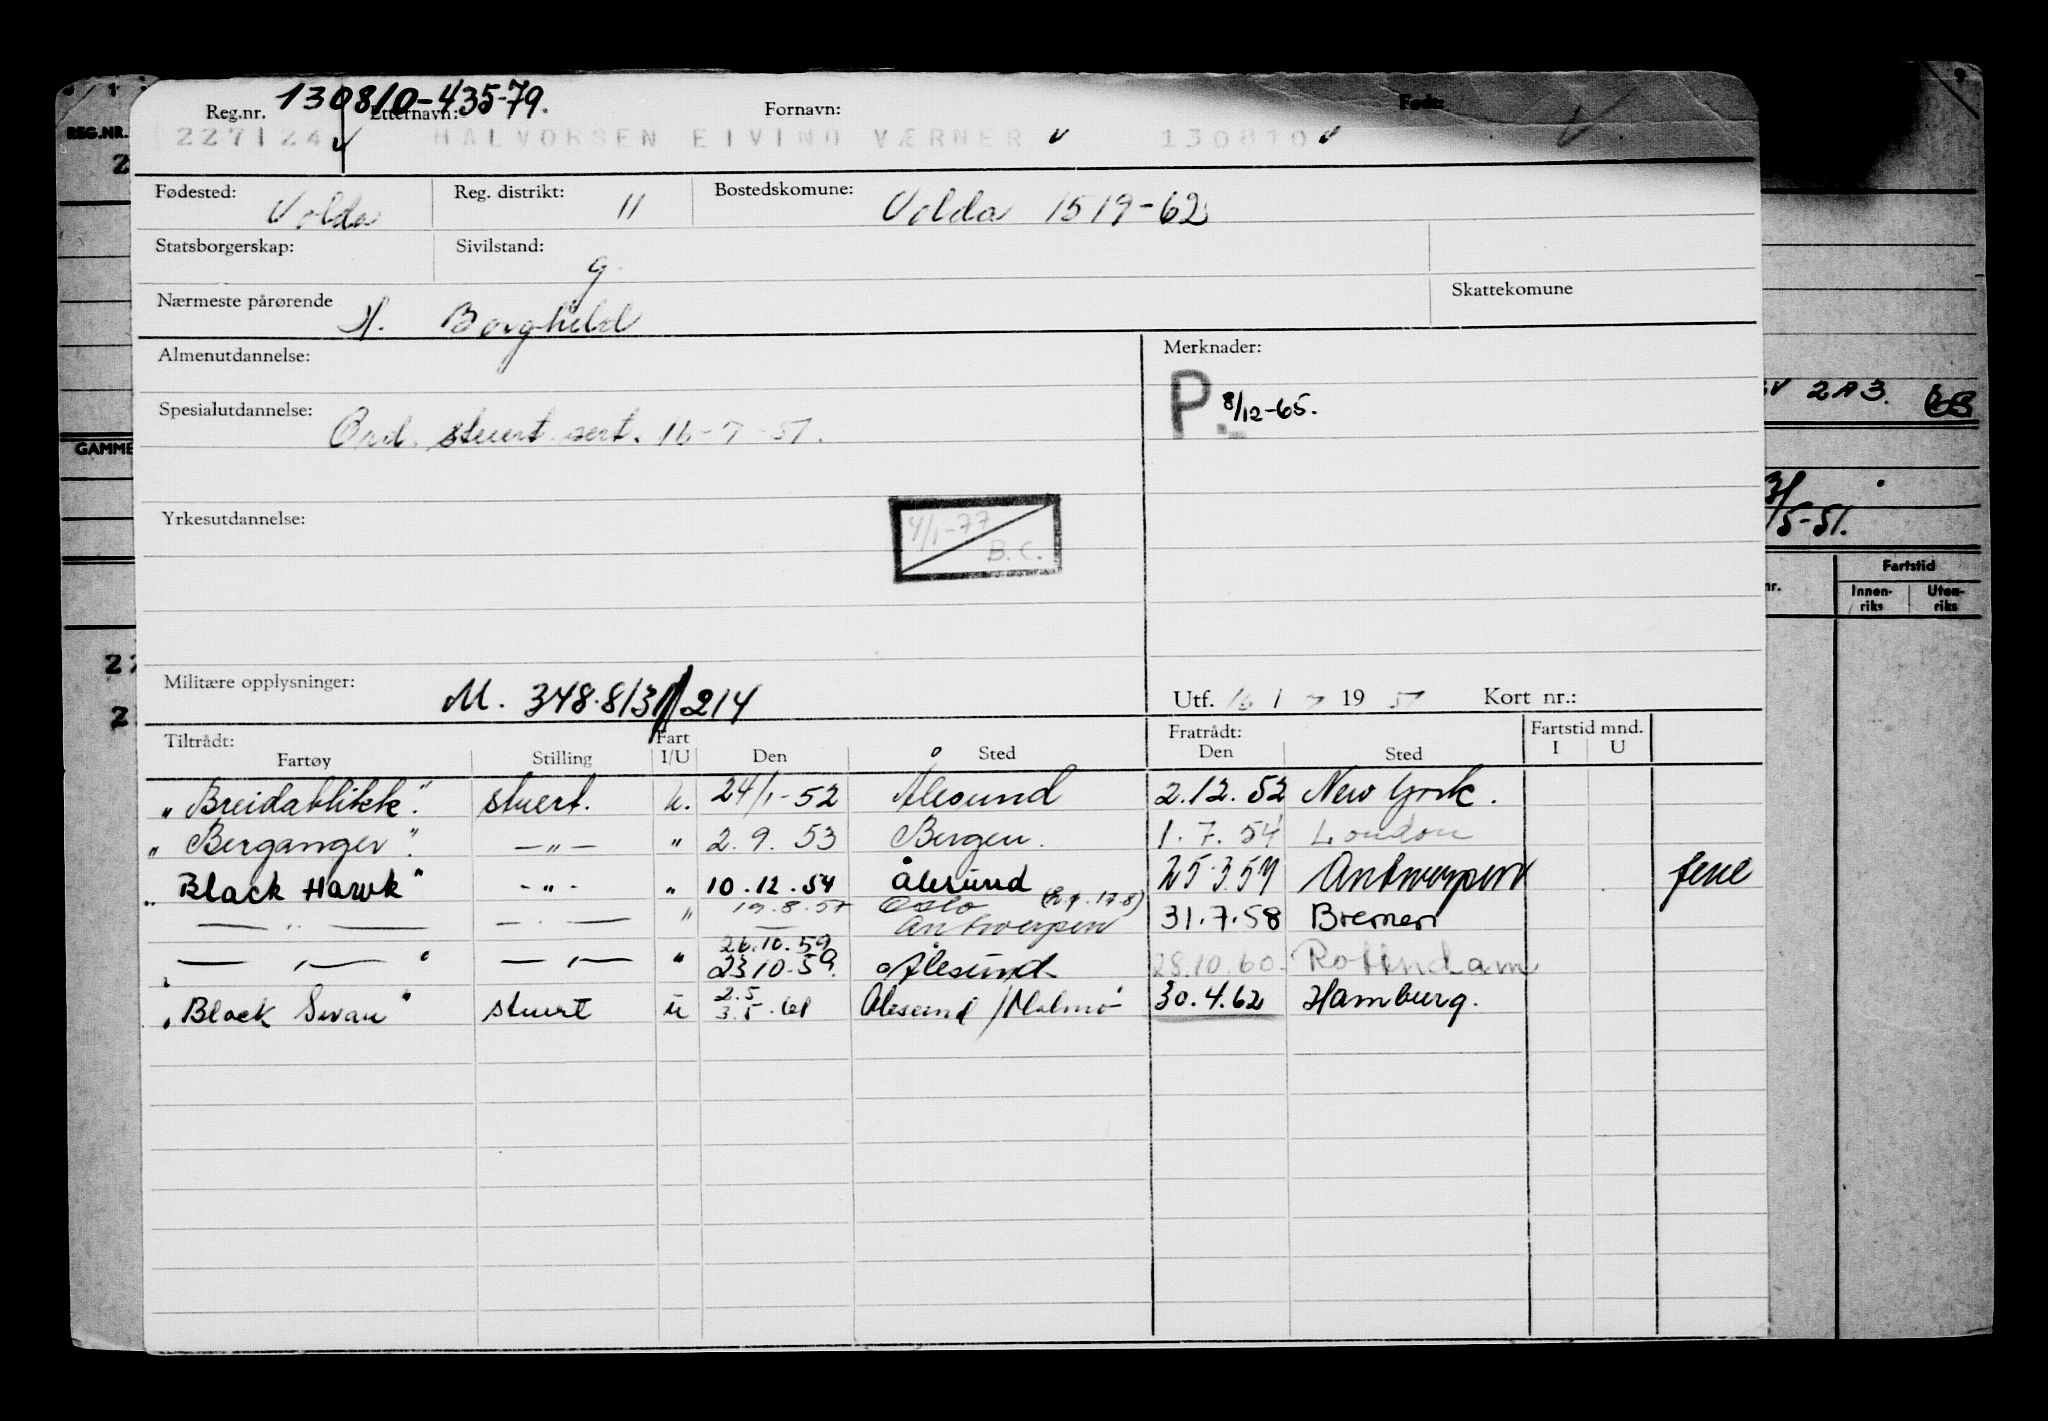 130810-43579.
Reg.nr. Etternavn: Fornavn: Født:
227124 HALVORSEN EIVIND VÆRNER 130810
REG.NR.
Fødested: Volda Reg. distrikt: 11 Bostedskomune: Volda 1519-62
Statsborgerskap: Sivilstand: g.
Nærmeste pårørende H. Borghild Skattekomune
Almenutdannelse: Merknader:
P. 8/12-65.
2 A 3.
Spesialutdannelse: Ord. stuert sert. 16-7-51.
GAMME
Yrkesutdannelse: 4/1-77 B.C.
5-51.
Fartstid
Innen-riks Uten-riks
Militære opplysninger: M. 348.8131/214 Utf. 16 / 7 19 51 Kort nr.:
Tiltrådt: Fart Fratrådt: Fartstid mnd.
Fartøy Stilling I/U Den Sted Den Sted I U
"Breidablikk". stuert. u. 24/1-52 Ålesund 2.12.52 New York.
"Berganger". —"— " 2.9.53 Bergen. 1.7.54 London
"Black Hawk" -"- " 10.12.54 Ålesund 25.3.57 Antwerpen ferie
— " — — " — " 19.8.57 Oslo
Antwerpen 31.7.58 Bremen
26.10.59
— " — — " — " 23.10.59. Ålesund 28.10.60. Rotterdam
2.5
"Black Swan" stuert u 3.5.61 Ålesund / Malmö 30.4.62 Hamburg.